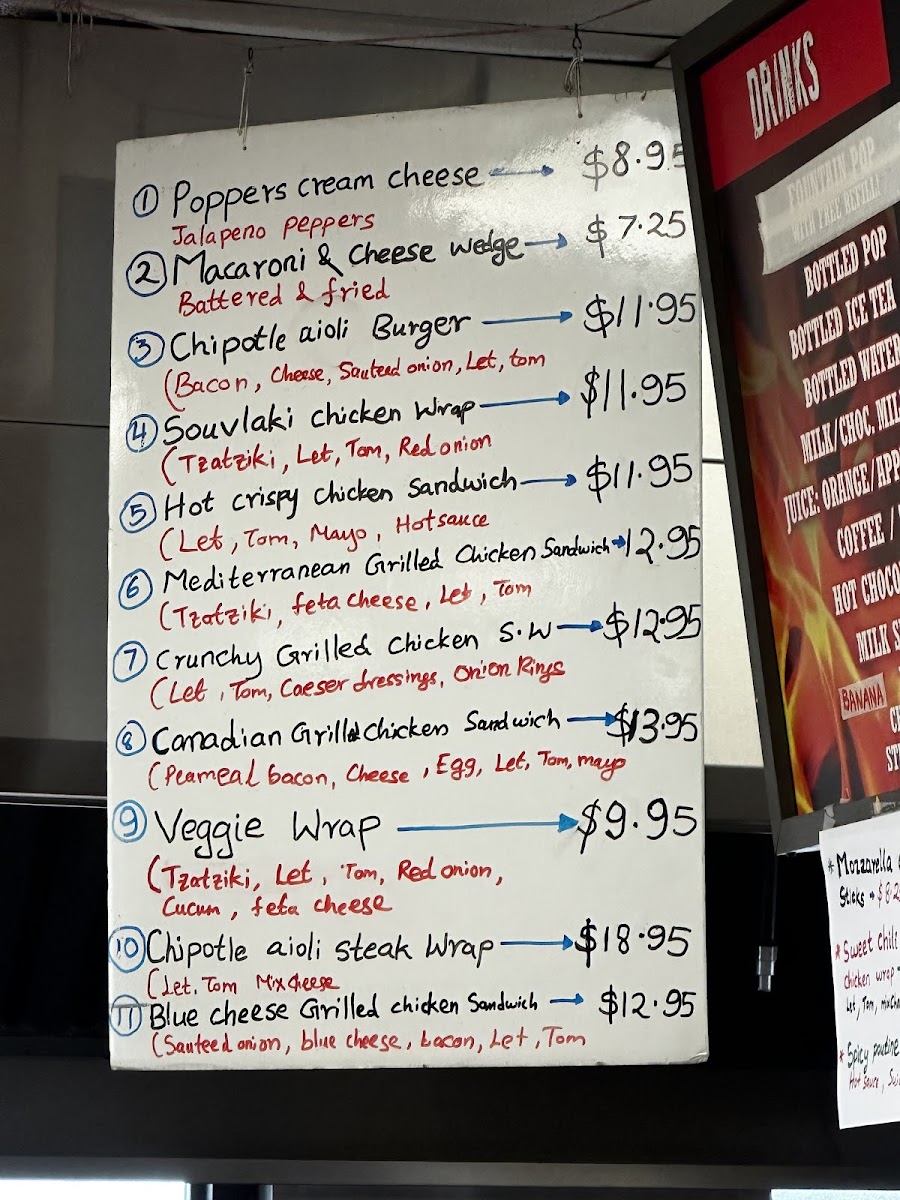 ① Poppers cream cheese → $8.95
Jalapeno peppers
② Macaroni & Cheese wedge → $7.25
Battered & fried
③ Chipotle aioli Burger → $11.95
(Bacon, Cheese, Sauteed onion, Let, tom
④ Souvlaki chicken Wrap → $11.95
(Tzatziki, Let, Tom, Red onion
⑤ Hot crispy chicken Sandwich → $11.95
(Let, Tom, Mayo, Hotsauce
⑥ Mediterranean Grilled Chicken Sandwich → 12.95
(Tzatziki, feta cheese, Let, Tom
⑦ Crunchy Grilled Chicken S.W → $12.95
(Let, Tom, Caeser dressings, Onion Rings
⑧ Canadian Grilled Chicken Sandwich → $13.95
(Peameal bacon, Cheese, Egg, Let, Tom, mayo
⑨ Veggie Wrap → $9.95
(Tzatziki, Let, Tom, Red onion,
Cucum, feta cheese
⑩ Chipotle aioli steak Wrap → $18.95
(Let. Tom Mix cheese
⑪ Blue cheese Grilled chicken Sandwich → $12.95
(Sauteed onion, blue cheese, bacon, Let, Tom
DRINKS
FOUNTAIN POP
WITH FREE REFILL!
BOTTLED POP
BOTTLED ICE TEA
BOTTLED WATER
MILK/CHOC. MIL
JUICE: ORANGE/APP
COFFEE /
HOT CHOCO
MILK S
BANANA
CH
ST
* Mozzarella
Sticks → $8.2
* Sweet chili
Chicken wrap
Let, Tom,
* Spicy poutine
Hot sauce,